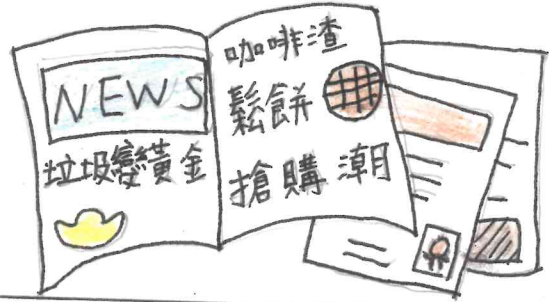 NEWS
垃圾變黃金
咖啡渣
鬆餅
搶購潮